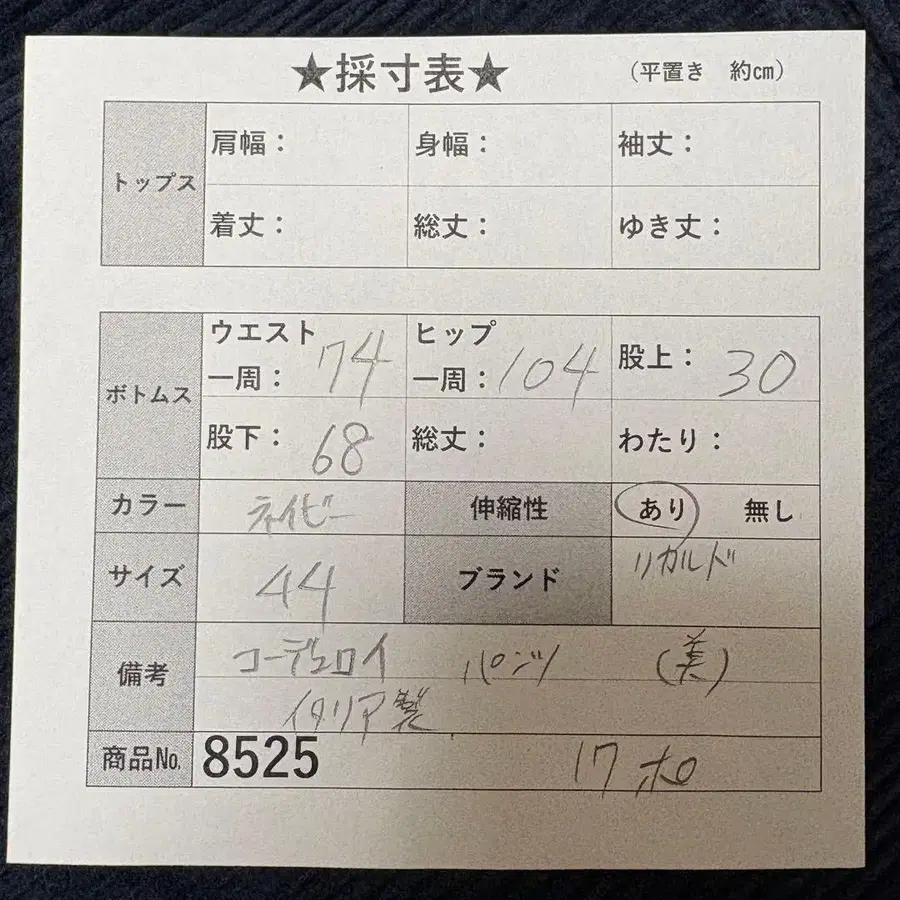 ★採寸表★ (平置き 約㎝)
トップス
肩幅: 身幅: 袖丈:
着丈: 総丈: ゆき丈:
ボトムス
ウエスト一周: 74 ヒップ一周: 104 股上: 30
股下: 68 総丈: わたり:
カラー ネイビー 伸縮性 あり 無し
サイズ 44 ブランド リカルド
備考 コーデュロイ パンツ (美)
イタリア製
商品No. 8525 17 ホロ